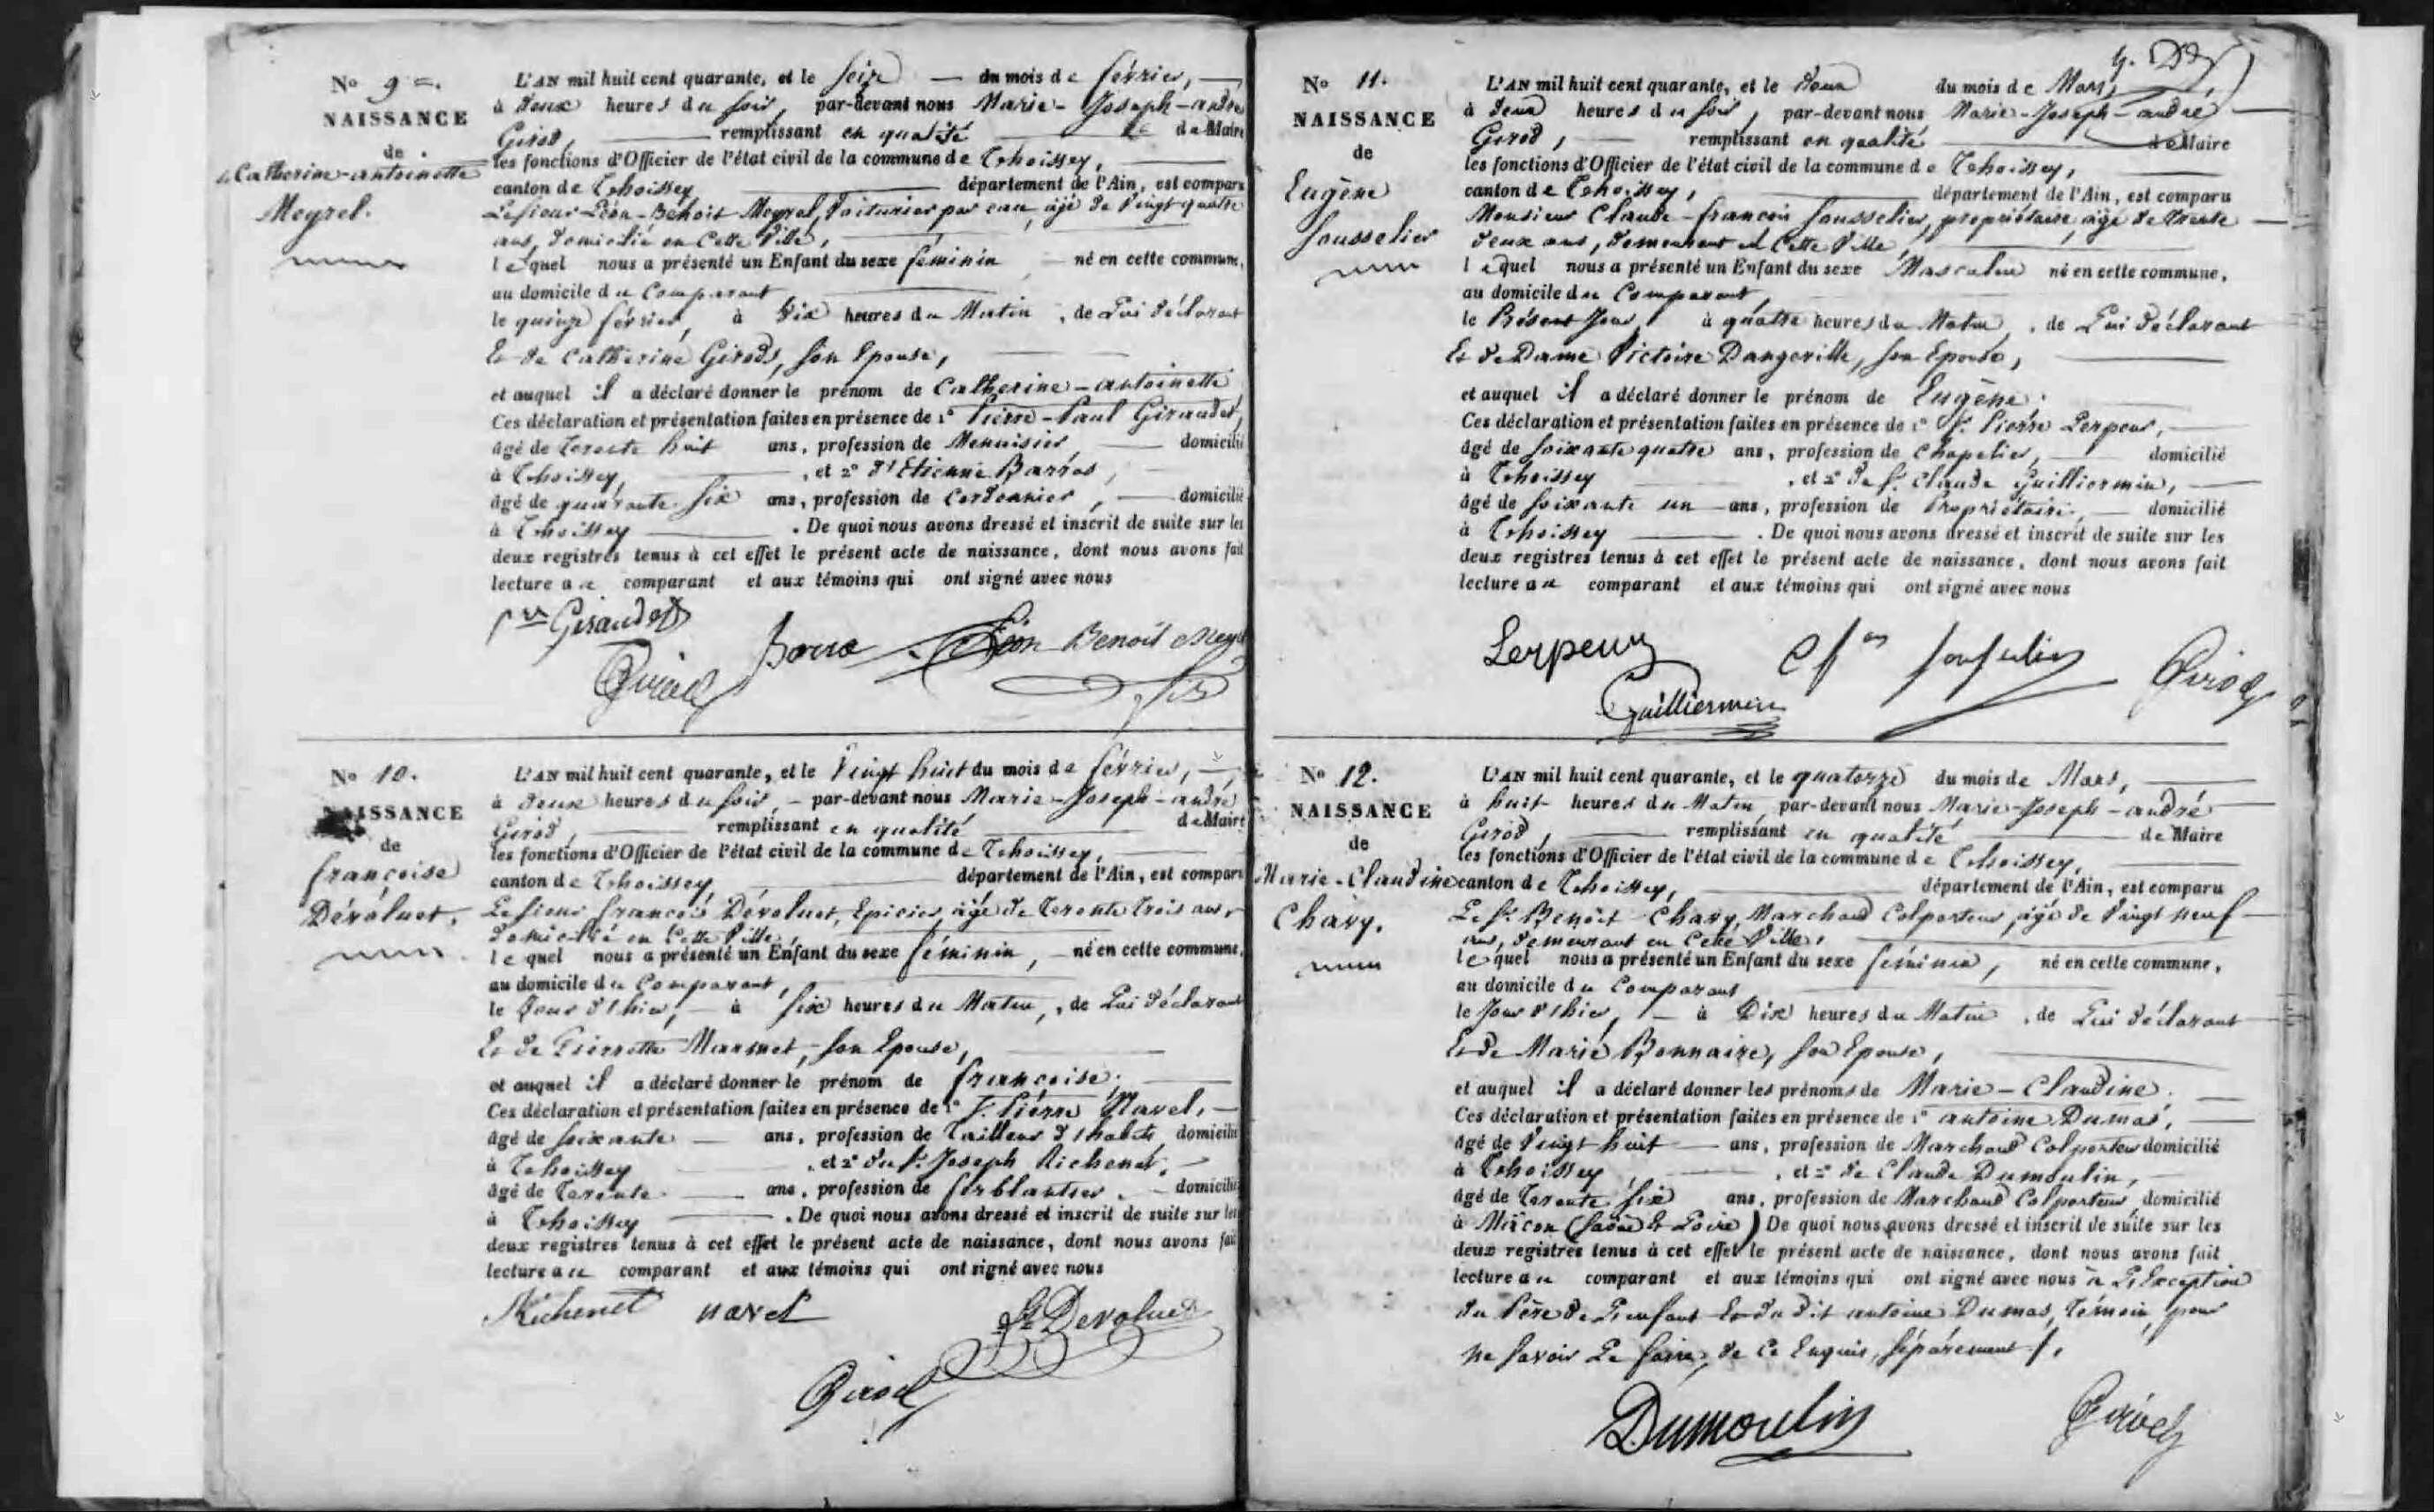 No 9
NAISSANCE
de
Catherine-antoinette
Meyrel.
L'AN mil huit cent quarante, et le seize du mois de février,
à deux heures du soir, par-devant nous Marie-Joseph-andré
Girod, remplissant en qualité de Maire
les fonctions d'Officier de l'état civil de la commune de Thoissey,
canton de Thoissey département de l'Ain, est comparu
Le sieur Léon-Benoit Meyrel, Voiturier par eau, âgé de Vingt quatre
ans, domicilié en Cette Ville,
lequel nous a présenté un Enfant du sexe féminin né en cette commune,
au domicile du Comparant
le quinze février, à dix heures du Matin, de Lui déclarant
Et de Catherine Girods, son Epouse,
et auquel il a déclaré donner le prénom de Catherine-antoinette
Ces déclaration et présentation faites en présence de 1° Pierre-Paul Giraudet,
âgé de Trente huit ans, profession de Menuisier, domicilié
à Thoissey, et 2° d'Etienne Barras,
âgé de quarante six ans, profession de Cordonnier, domicilié
à Thoissey. De quoi nous avons dressé et inscrit de suite sur les
deux registres tenus à cet effet le présent acte de naissance, dont nous avons fait
lecture au comparant et aux témoins qui ont signé avec nous
Giraudet
Léon Benoit
Girod
No 10.
NAISSANCE
de
françoise
Dévoluet.
L'AN mil huit cent quarante, et le Vingt huit du mois de février,
à deux heures du soir, par-devant nous Marie-Joseph-andré
Girod, remplissant en qualité de Maire
les fonctions d'Officier de l'état civil de la commune de Thoissey,
canton de Thoissey, département de l'Ain, est comparu
Le sieur françois Dévoluet, Epicier, âgé de Trente trois ans,
domicilié en Cette Ville,
lequel nous a présenté un Enfant du sexe féminin, né en cette commune,
au domicile du Comparant,
le Jour d'hier, à six heures du Matin, de Lui déclarant
Et de Pierrette Manmet, son Epouse,
et auquel il a déclaré donner le prénom de françoise.
Ces déclaration et présentation faites en présence de 1° S. Pierre Navel,
âgé de soixante ans, profession de Tailleur d'habits domicilié
à Thoissey, et 2° du S. Joseph Richenet,
âgé de Trente ans, profession de ferblantier, domicilié
à Thoissey. De quoi nous avons dressé et inscrit de suite sur les
deux registres tenus à cet effet le présent acte de naissance, dont nous avons fait
lecture au comparant et aux témoins qui ont signé avec nous
Richenet navel Devoluet
Girod
No 11.
NAISSANCE
de
Eugène
Sousselier
L'AN mil huit cent quarante, et le Douze du mois de Mars,
à deux heures du soir, par-devant nous Marie-Joseph-andré
Girod, remplissant en qualité de Maire
les fonctions d'Officier de l'état civil de la commune de Thoissey,
canton de Thoissey, département de l'Ain, est comparu
Monsieur Claude-françois Sousselier, propriétaire, âgé de trente
deux ans, demeurant en Cette Ville,
lequel nous a présenté un Enfant du sexe Masculin né en cette commune,
au domicile du Comparant,
le Présent Jour, à quatre heures du Matin, de Lui déclarant
Et de Dame Victoire Dangeville, son Epouse,
et auquel il a déclaré donner le prénom de Eugène.
Ces déclaration et présentation faites en présence de 1° S. Pierre Lerpeur,
âgé de soixante quatre ans, profession de Chapelier, domicilié
à Thoissey, et 2° du S. Claude Guilliermin,
âgé de soixante un ans, profession de Propriétaire, domicilié
à Thoissey. De quoi nous avons dressé et inscrit de suite sur les
deux registres tenus à cet effet le présent acte de naissance, dont nous avons fait
lecture au comparant et aux témoins qui ont signé avec nous
Lerpeur Girod
Guilliermin
No 12.
NAISSANCE
de
Marie-Claudine
Chavy.
L'AN mil huit cent quarante, et le quatorze du mois de Mars,
à huit heures du Matin par-devant nous Marie-Joseph-andré
Girod, remplissant en qualité de Maire
les fonctions d'Officier de l'état civil de la commune de Thoissey,
canton de Thoissey, département de l'Ain, est comparu
Le S. Benoit Chavy, Marchand Colporteur, âgé de Vingt neuf
ans, demeurant en Cette Ville,
lequel nous a présenté un Enfant du sexe féminin, né en cette commune,
au domicile du Comparant
le Jour d'hier, à Dix heures du Matin, de Lui déclarant
Et de Marie Bonnaire, son Epouse,
et auquel il a déclaré donner les prénoms de Marie-Claudine.
Ces déclaration et présentation faites en présence de 1° antoine Dumas,
âgé de Vingt huit ans, profession de Marchand Colporteur domicilié
à Thoissey, et 2° de Claude Dumoulin,
âgé de Trente six ans, profession de Marchand Colporteur, domicilié
à Mâcon (Saône et Loire) De quoi nous avons dressé et inscrit de suite sur les
deux registres tenus à cet effet le présent acte de naissance, dont nous avons fait
lecture au comparant et aux témoins qui ont signé avec nous à L'Exception
du Père de L'enfant Et du dit antoine Dumas, Témoin, pour
ne Savoir Le faire, de Ce Enquis, séparément
Dumoulin Girod